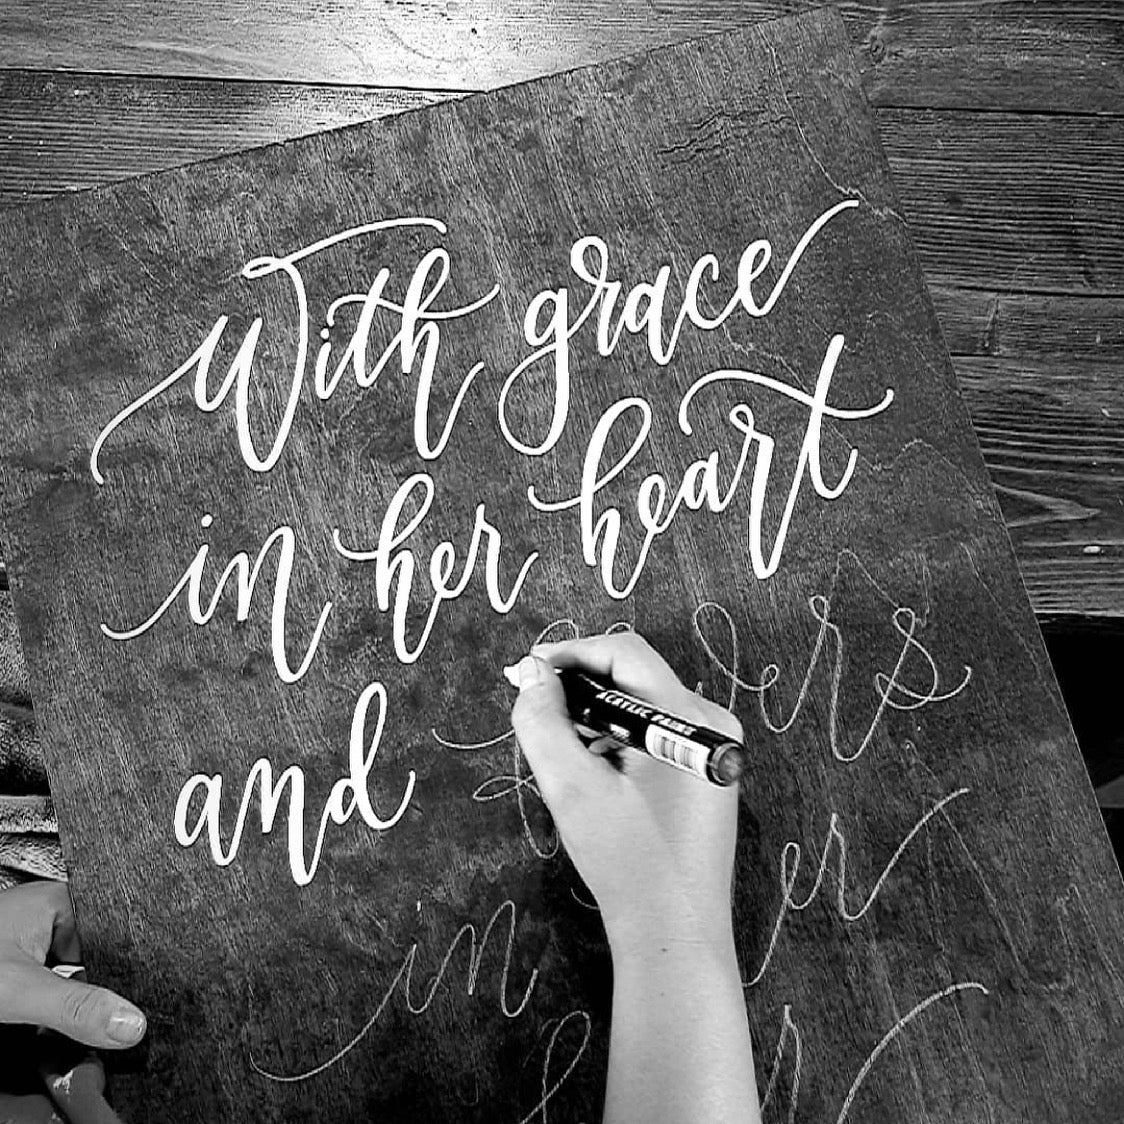 With grace
in her heart
and
in
ACRYLIC PAINT